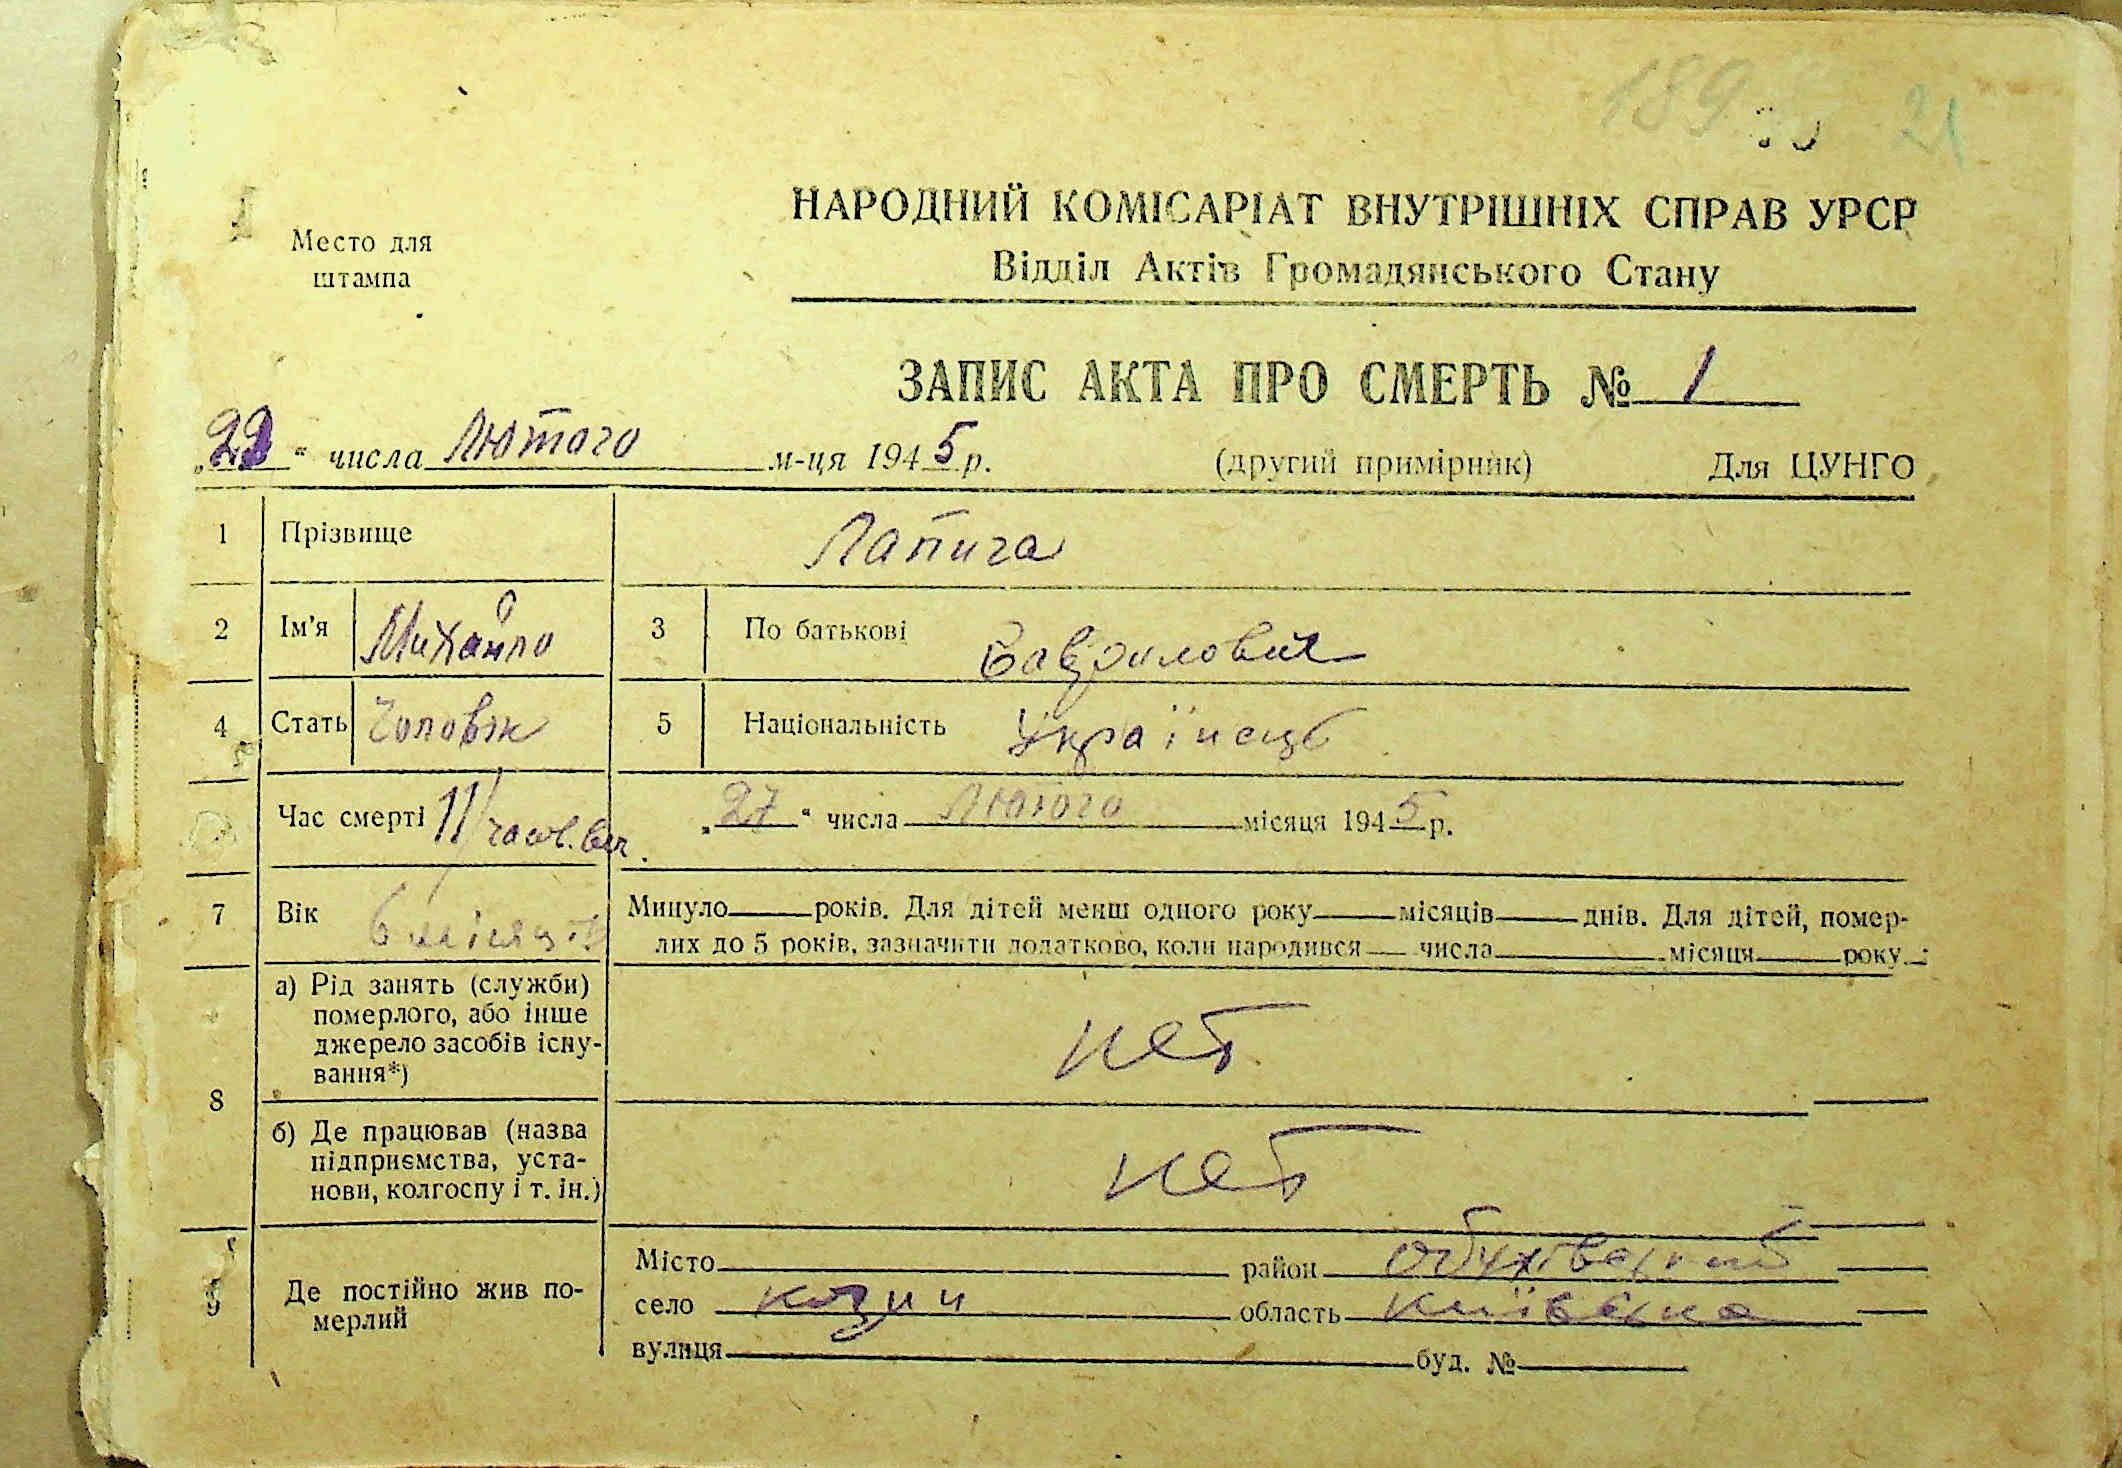 189 21
Место для
штампа
НАРОДНИЙ КОМІСАРІАТ ВНУТРІШНІХ СПРАВ УРСР
Відділ Актів Громадянського Стану
ЗАПИС АКТА ПРО СМЕРТЬ № 1
" числа Лютого м-ця 1945 р. (другий примірник) Для ЦУНГО
1 Прізвище Лапига
2 Ім'я Михайло 3 По батькові Гаврилович
4 Стать Чоловік 5 Національність Українець
Час смерті 11 часов. веч. „27" числа Лютого місяця 1945 р.
7 Вік 6 місяців Минуло років. Для дітей менш одного року місяців днів. Для дітей, помер-
лих до 5 років, зазначити додатково, коли народився числа місяця року.
8 а) Рід занять (служби)
померлого, або інше
джерело засобів існу-
вання*) нет
б) Де працював (назва
підприємства, уста-
нови, колгоспу і т. ін.) нет
9 Де постійно жив по-
мерлий
Місто район Обухівський
село Козин область Київська
вулиця буд. №